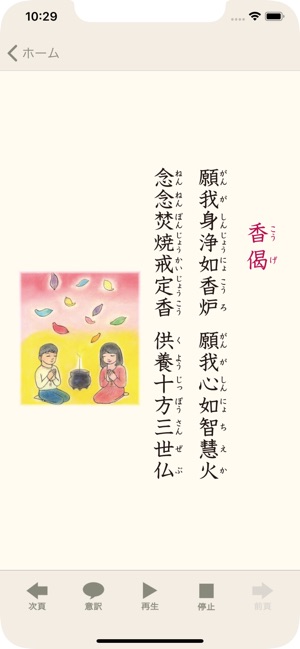 10:29
ホーム
香偈
こうげ
願我身浄如香炉 願我心如智慧火
がんがしんじょうにょこうろ がんがしんにょちえか
念念焚焼戒定香 供養十方三世仏
ねんねんぼんじょうかいじょうこう くようじっぽうさんぜぶ
次頁
意訳
再生
停止
前頁